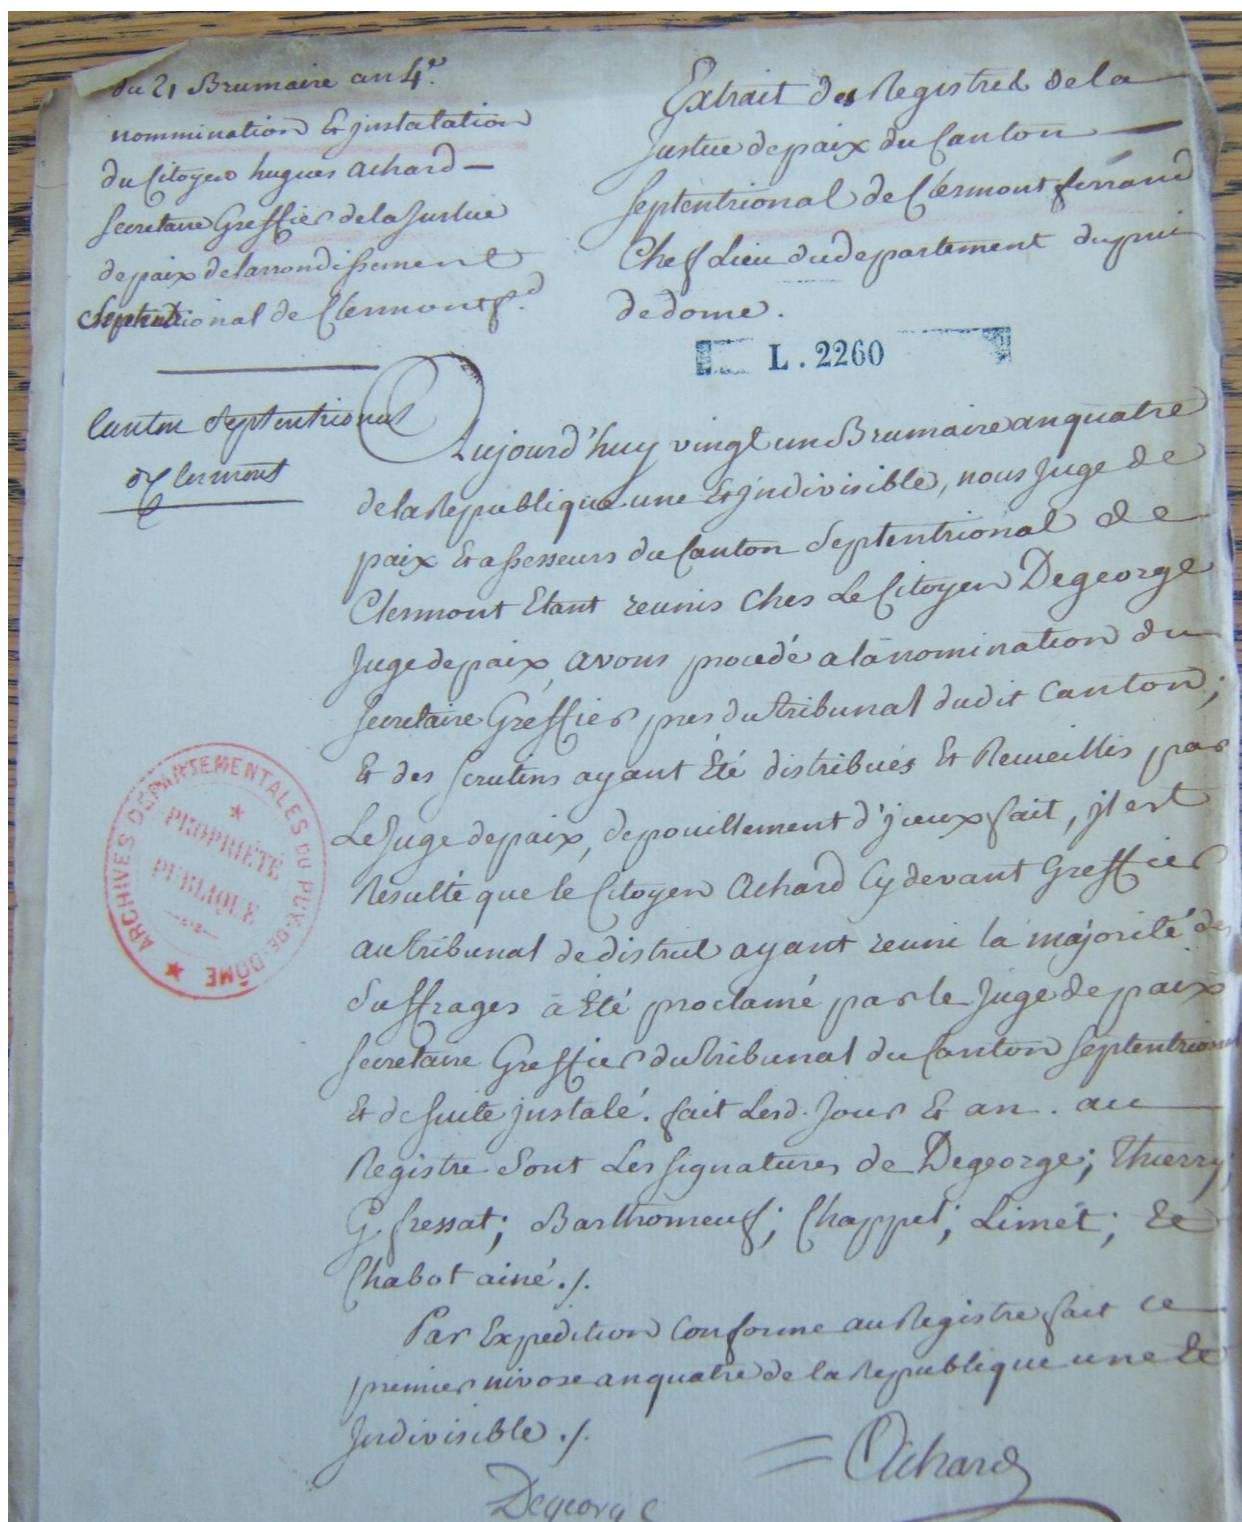 du 21 Brumaire an 4e.
nommination et jnstalation
du Citoyen hugues achard —
Secretaire Greffier de la Justice
de paix de larrondissement
Septentrional de Clermont f.d
Canton Septentrional
de Clermont
Extrait des Registres de la
Justice de paix du Canton —
Septentrional de Clermont ferrand
Chef Lieu du departement du pui
de dome.
L. 2260
Aujourd'huy vingt un Brumaire an quatre
de la Republique une et jndivisible, nous Juge de
paix et assesseurs du Canton Septentrional de
Clermont Etant reunis ches Le Citoyen Degeorge
Juge de paix, avons procedé a la nomination du
Secretaire Greffier pres du tribunal dudit Canton;
Et des scrutins ayant Eté distribués et Recueillis par
Le Juge de paix, depouillement d'jceux fait, jl est
Resulté que le Citoyen Achard Cy devant Greffier
au tribunal de district ayant reuni la majorité des
Suffrages à Eté proclamé par le Juge de paix
Secretaire Greffier du tribunal du Canton Septentrional
Et de suite jnstalé. fait Lesd. Jour et an. au
Registre sont Les signatures de Degeorge; Thierry;
G. fressat; Barthomeuf; Chappel; Limét; et
Chabot ainé ./.
Par Expedition Conforme au Registre fait ce
premier nivose an quatre de la Republique une et
Jndivisible ./.
Achard
Degeorge
ARCHIVES DÉPARTEMENTALES DU PUY-DE-DÔME
PROPRIÉTÉ
PUBLIQUE